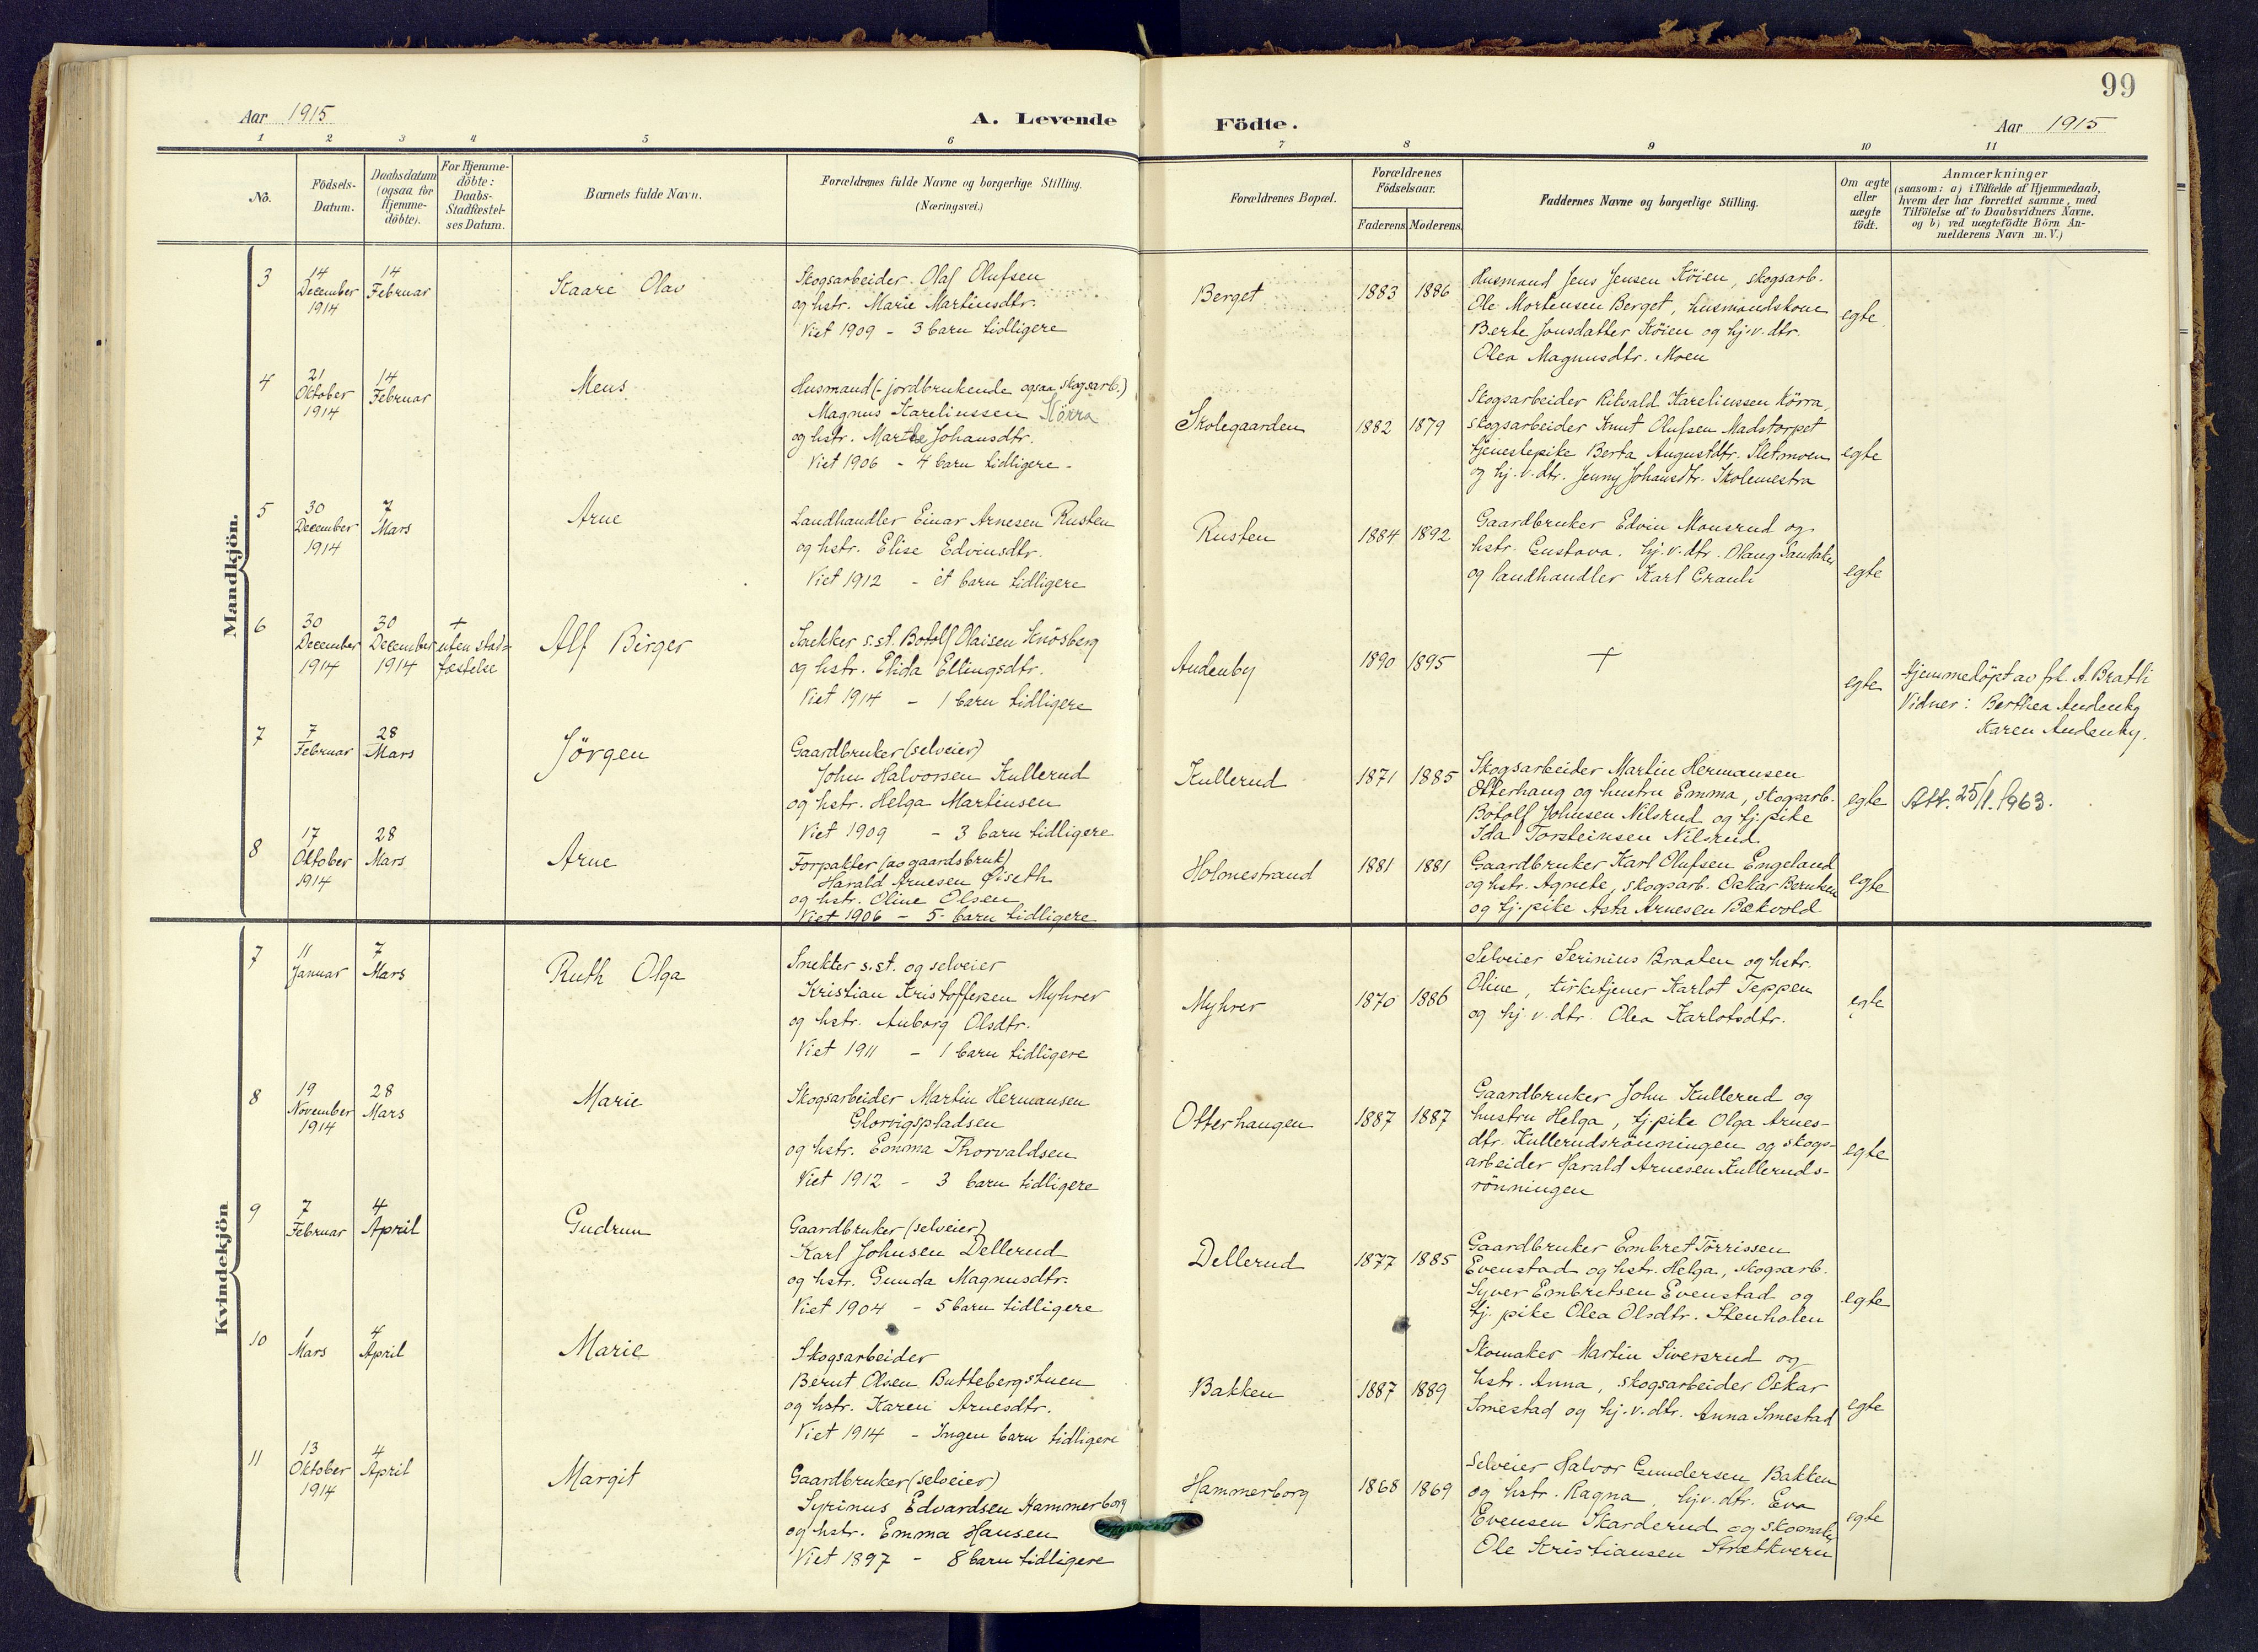 99
Aar 1915
A. Levende Födte.
Aar 1915
1 2 3 4 5 6 7 8 9 10 11
No.
Födsels-
Datum.
Daabsdatum
(ogsaa for
Hjemme-
döbte).
For Hjemme-
döbte:
Daabs-
Stadfæstel-
ses Datum.
Barnets fulde Navn.
Forældrenes fulde Navne og borgerlige Stilling.
(Næringsvei.)
Forældrenes Bopæl.
Forældrenes
Födselsaar.
Faderens. Moderens.
Faddernes Navne og borgerlige Stilling.
Om ægte
eller
uægte
födt.
Anmærkninger
(saasom: a) i Tilfælde af Hjemmedaab,
hvem der har forrettet samme, med
Tilföielse af to Daabsvidners Navne.
og b) ved uægtefödte Börn An-
melderens Navn m. V.)
Mandkjön.
3
14
December
1914
14
Februar
Kaare Olav
Skogsarbeider Olaf Olufsen
og hstr. Marie Martinsdtr.
Viet 1909 - 3 barn tidligere
Berget
1883 1886
Husmand Jens Jensen Köien, skogsarb.
Ole Mortensen Berget, husmandskone
Berte Jonsdatter Köien og hj.v.dtr.
Olea Magnusdtr. Moen
egte
4
21
Oktober
1914
14
Februar
Mens
Husmand (- jordbrukende ogsaa skogsarb.)
Magnus Kareliussen Körra
og hstr. Marthe Johansdtr.
Viet 1906 - 4 barn tidligere -
Skolegaarden
1882 1879
Skogsarbeider Rikvald Kareliussen Körra,
skogsarbeider Knut Olufsen Madstorpet
tjenestepike Berta Augustdtr. Sletmoen
og hj.v.dtr. Jenny Johansdtr. Skolemestra
egte
5
30
December
1914
7
Mars
Arne
Landhandler Einar Arnesen Rusten
og hstr. Elise Edvinsdtr.
Viet 1912 - ét barn tidligere
Rusten
1884 1892
Gaardbruker Edvin Monsrud og
hstr. Gustava. hj.v.dtr. Olaug Sandaker
og landhandler Karl Grauli
egte
6
30
December
1914
30
December
1914
+
uten stad-
fæstelse
Alf Birger
Snekker s.st. Botolf Olaisen Knösberg
og hstr. Elida Ellingsdtr.
Viet 1914 - 1 barn tidligere
Audenby
1890 1895
+
egte
Hjemmedöpt av frk. A. Brathi
Vidner: Berthea Audenby
Karen Audenby.
7
7
Februar
28
Mars
Jörgen
Gaardbruker (selveier)
John Halvorsen Kullerud
og hstr. Helga Martinsen
Viet 1909 - 3 barn tidligere
Kullerud
1871 1885
Skogsarbeider Martin Hermansen
Otterhaug og hustru Emma, skogsarb.
Botolf Johnsen Nilsrud og tj.pike
Ida Torsteinsen Nilsrud.
egte
Att. 25/1. 1963.
8
17
Oktober
1914
28
Mars
Arne
Forpakter (av gaardsbruk)
Harald Arnesen Öiseth
og hstr. Oline Olsen
Viet 1906 - 5 - barn tidligere
Holmestrand
1881 1881
Gaardbruker Karl Olufsen Engeland
og hstr. Agnete, skogsarb. Oskar Berntsen
og tj.pike Asta Arnesen Bækvold
egte
Kvindekjön
7
11
Januar
7
Mars
Ruth Olga
Snekker s.st. og selveier
Kristian Kristoffersen Myhrer
og hstr. Anborg Olsdtr.
Viet 1911 - 1 barn tidligere
Myhrer
1870 1886
Selveier Serinius Braaten og hstr.
Oline, kirketjener Karlot Teppen
og hj.v.dtr. Olea Karlotsdtr.
egte
8
19
November
1914
28
Mars
Marie
Skogsarbeider Martin Hermansen
Glorvigspladsen
og hstr. Emma Thorvaldsen
Viet 1912 - 3 barn tidligere
Otterhaugen
1887 1887
Gaardbruker John Kullerud og
hustru Helga, tj.pike Olga Arnes-
dtr. Kullerudsrönningen og skogs-
arbeider Harald Arnesen Kulleruds-
rönningen
egte
9
7
Februar
4
April
Gudrun
Gaardbruker (selveier)
Karl Johnsen Dellerud
og hstr. Gunda Magnusdtr.
Viet 1904 - 5 barn tidligere
Dellerud
1877 1885
Gaardbruker Embret Törrissen
Evenstad og hstr. Helga, skogsarb.
Syver Embretsen Evenstad og
tj. pike Olea Olsdtr. Stenholen
egte
10
1
Mars
4
April
Marie
Skogsarbeider
Bernt Olsen Buttebergstuen
og hstr. Karen Arnesdtr.
Viet 1914 - Ingen barn tidligere
Bakken
1887 1889
Skomaker Martin Siversrud og
hstr. Anna, skogsarbeider Oskar
Smestad og hj.v.dtr. Anna Smestad
egte
11
13
Oktober
1914
4
April
Margit
Gaardbruker (selveier)
Syrinus Edvardsen Hammerborg
og hstr. Emma Hansen
Viet 1897 - 8 barn tidligere
Hammerborg
1868 1869
Selveier Halvor Gundersen Bakken
og hstr. Ragna, hj.v.dtr. Eva
Evensen Skarderud og skomaker
Ole Kristiansen Strætkvern
egte